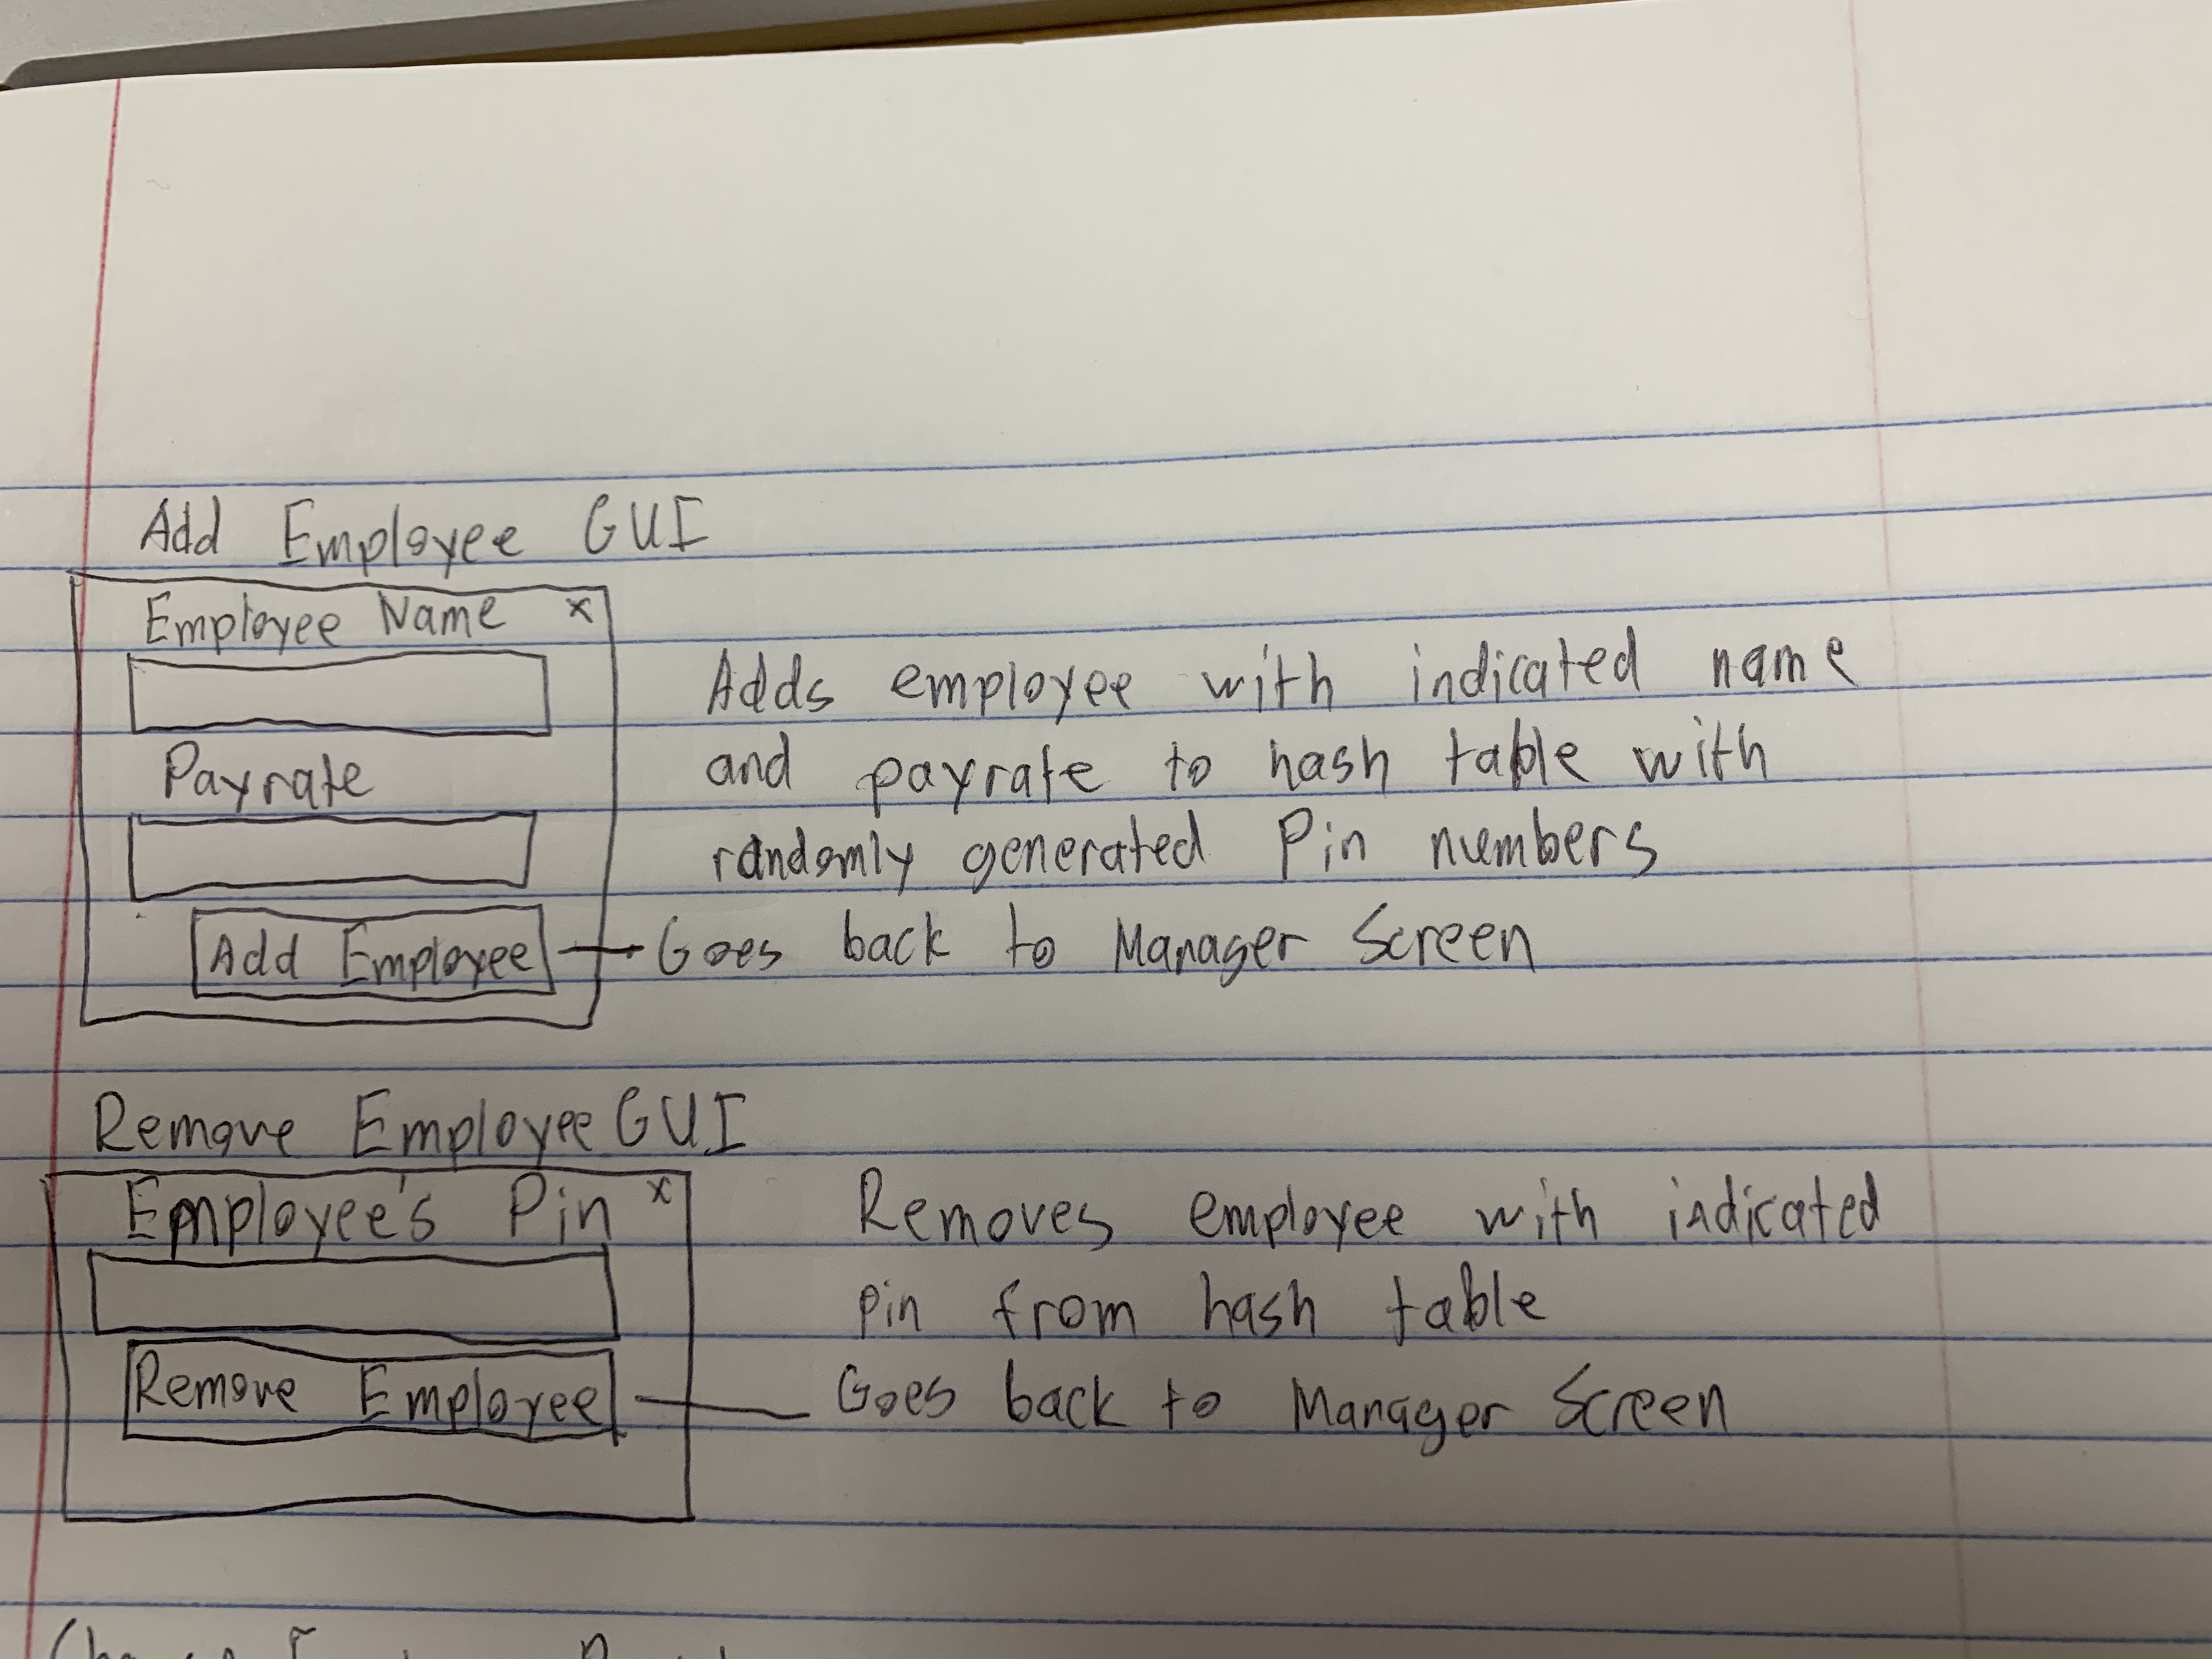 Add Employee GUI
Employee Name x
Payrate
Add Employee
Adds employee with indicated name
and payrate to hash table with
randomly generated Pin numbers
Goes back to Manager Screen
Remove Employee GUI
Employee's Pin x
Remove Employee
Removes employee with indicated
pin from hash table
Goes back to Manager Screen